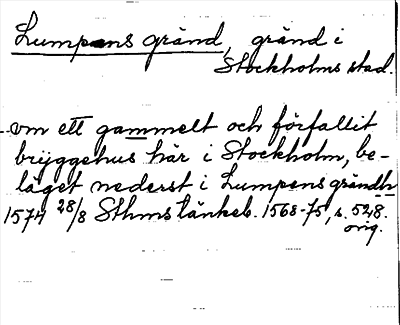 Lumpens gränd, gränd i
Stockholms stad.
om ett gammelt och förfallit
brÿggehus här i Stockholm, be-
läget nederst i Lumpens grändh
1574 28/8 Sthms tänkeb. 1568-75, s. 528.
orig.